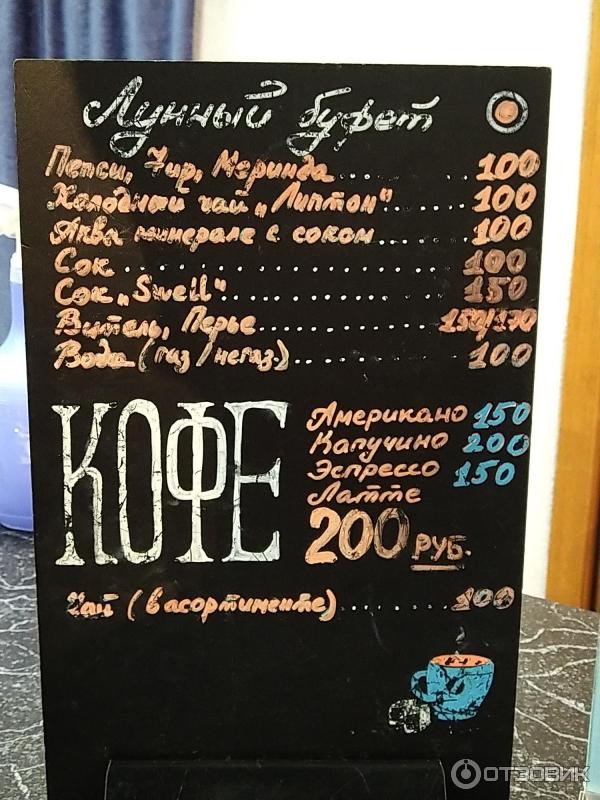 Лунный буфет
Пепси, 7up, Меринда... 100
Холодный чай „Липтон"... 100
Аква минерале с соком... 100
Сок... 100
Сок „Swell"... 150
Витель, Перье... 150/170
Вода (газ/негаз.)... 100
КОФЕ
Американо 150
Капучино 200
Эспрессо 150
Латте
200 РУБ.
Чай (в асортименте)... 100
ОТЗОВИК